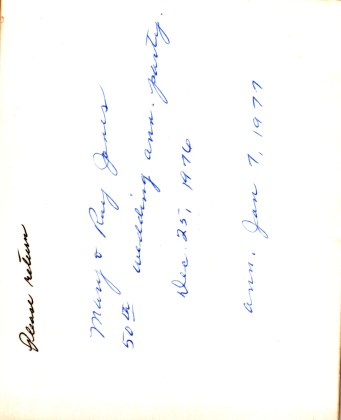 Please return
Mary & Ray Jones
50th wedding ann. party.
Dec. 25, 1976
ann. Jan 7, 1977